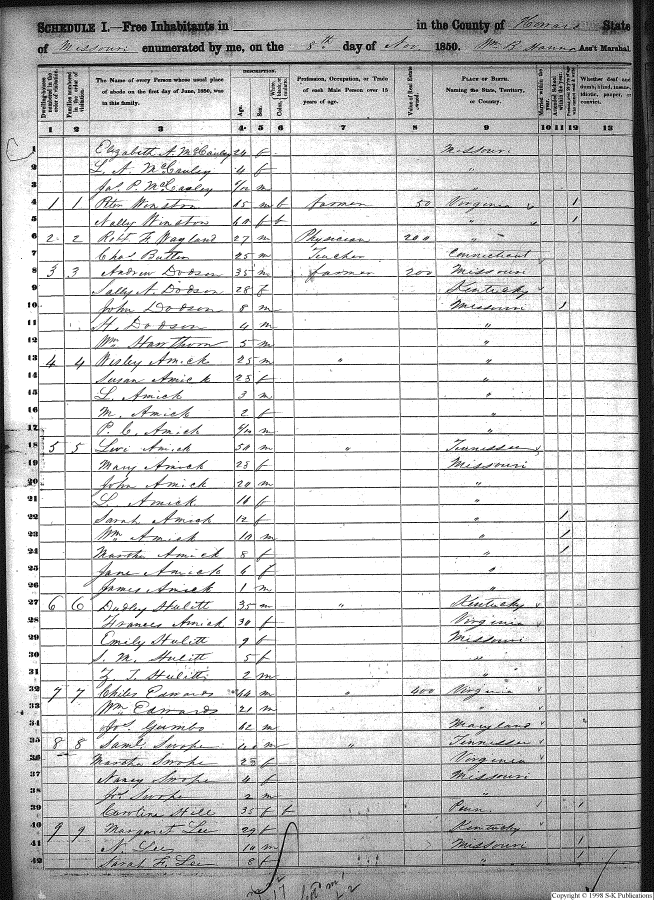 SCHEDULE I.—Free Inhabitants in in the County of Howard State
of Missouri enumerated by me, on the 8th day of Nov. 1850. Wm B Hanna Ass't Marshal.
Dwelling-houses numbered in the order of visitation.
Families numbered in the order of visitation.
The Name of every Person whose usual place of abode on the first day of June, 1850, was in this family.
DESCRIPTION.
Age.
Sex.
Color, White, black, or mulatto.
Profession, Occupation, or Trade of each Male Person over 15 years of age.
Value of Real Estate owned.
PLACE OF BIRTH. Naming the State, Territory, or Country.
Married within the year.
Attended School within the year.
Whether deaf and dumb, blind, insane, idiotic, pauper, or convict.
1 2 3 4 5 6 7 8 9 10 11 12 13
1 Elizabeth A. McCauley 24 f Missouri
2 L. A. McCauley 4 f "
3 Jas. P. McCauley m
4 1 1 Winston 65 m b farmer 50 Virginia 1
5 Winston 60 f b " 1
6 2 2 Robt. F. Wayland 27 m Physician 200 "
7 Chas. Button 25 m Teacher Connecticut
8 3 3 Andrew Dodson 35 m farmer 200 Missouri
9 Sally A. Dodson 28 f Kentucky
10 John Dodson 8 m Missouri 1
11 H. Dodson 4 m "
12 Wm Hawthorn 5 m "
13 4 4 Wesley Amick 25 m " "
14 Susan Amick 23 f "
15 L. Amick 3 m "
16 M. Amick 2 f "
17 P. C. Amick m "
18 5 5 Levi Amick 50 m " Tennessee
19 Mary Amick 23 f Missouri
20 John Amick 20 m "
21 L. Amick f "
22 Sarah Amick 12 f " 1
23 Wm Amick 10 m " 1
24 Martha Amick 8 f " 1
25 Jane Amick 6 f "
26 James Amick 1 m "
27 6 6 Dudley Hulitt 35 m " Kentucky
28 Frances Amick 30 f Virginia
29 Emily Hulitt 9 f Missouri
30 S. M. Hulitt 5 f "
31 Z. T. Hulitt 2 m "
32 7 7 Chiles Edwards 44 m " 400 Virginia
33 Wm Edwards 21 m "
34 Jos. Gumbo 62 m Maryland "
35 8 8 Saml. Swope 40 m " Tennessee
36 Martha Swope 23 f Virginia
37 Nancy Swope 4 f Missouri
38 Jos Swope 2 m "
39 Caroline Hill 35 f b Penn 1
40 9 9 Margaret Lee 29 f Kentucky
41 N. Lee 10 m Missouri 1
42 Sarah F. Lee 8 f " 1
Copyright © 1998 S-K Publications